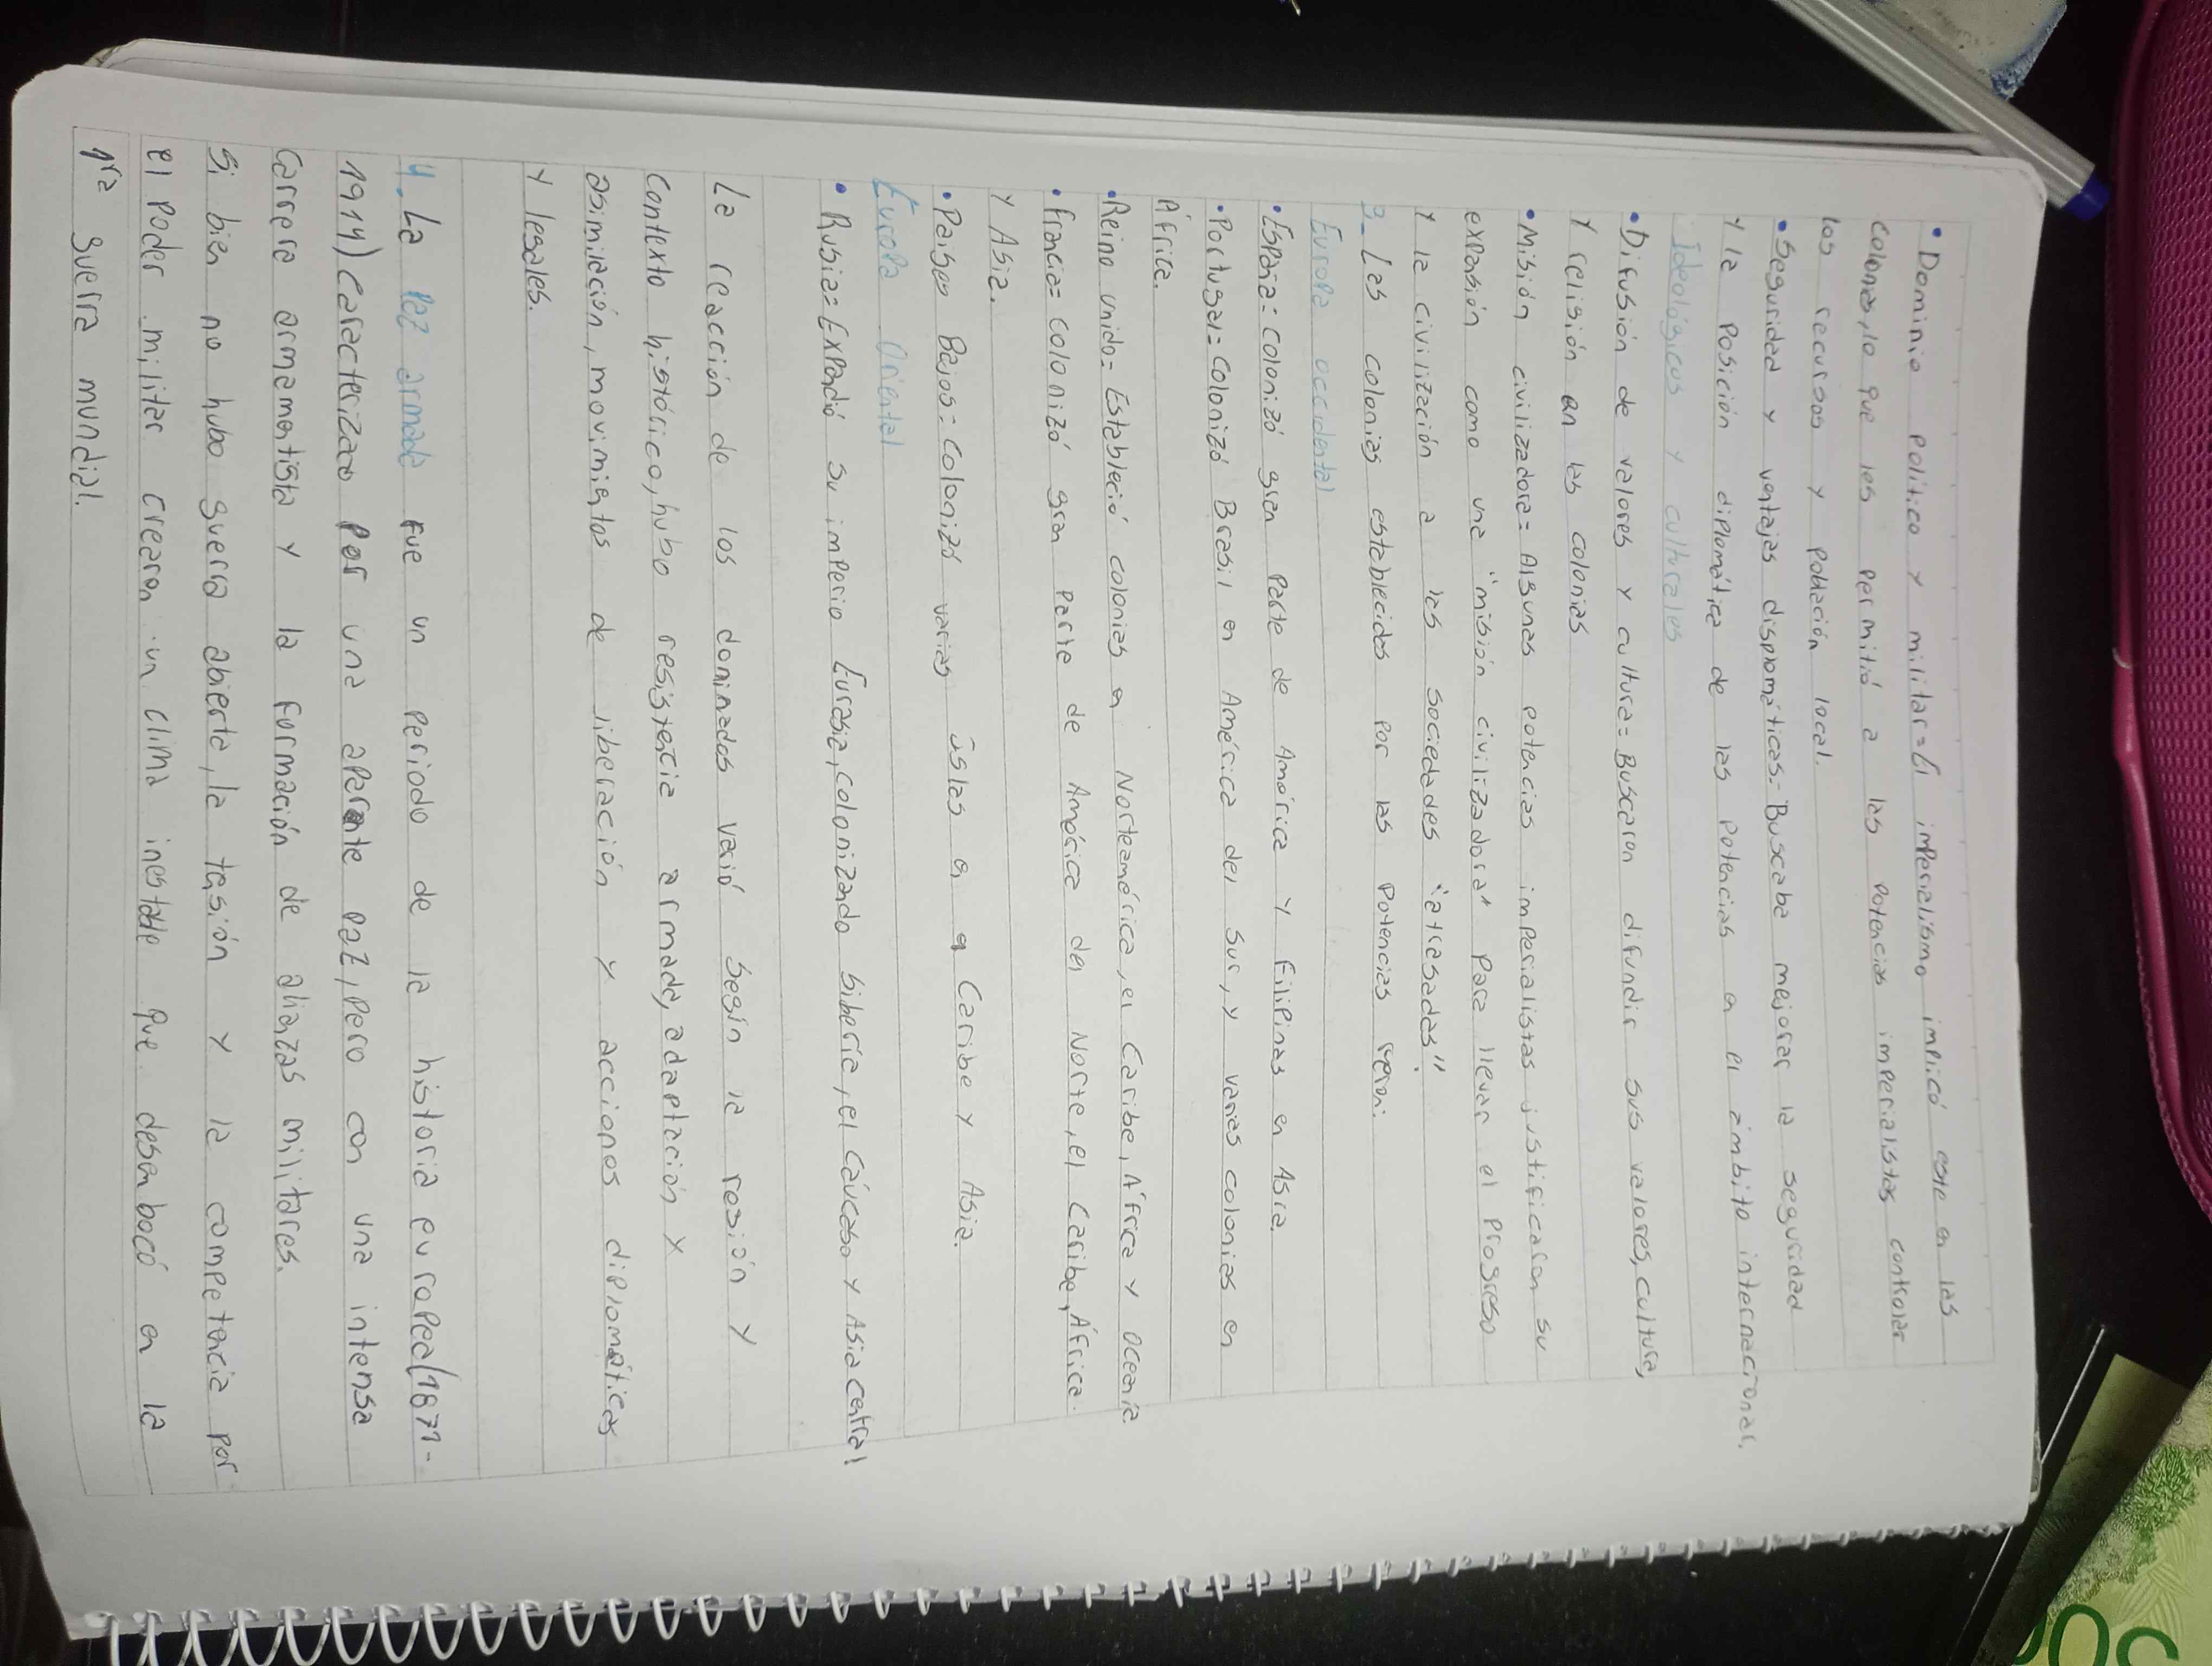 • Dominio político y militar= El imperialismo implicó este en las
colonias, lo que les permitió a las potencias imperialistas controlar
los recursos y población local.
• Seguridad y ventajas displomáticas= Buscaba mejorar la seguridad
y la posición diplomática de las potencias en el ámbito internacional.
Ideológicos y culturales
• Difusión de valores y cultura= Buscaron difundir sus valores, cultura,
y religión en las colonias
• Misión civilizadora= Algunas potencias imperialistas justificaron su
expasión como una "misión civilizadora" para llevar el progreso
y la civilización a las sociedades "atrasadas".
3_ Las colonias establecidas por las potencias
Europa occidental
• España= colonizó gran parte de América y Filipinas en Asia.
• Portugal= colonizó Brasil en América del sur, y varias colonias en
África.
• Reino unido= Estableció colonias en Norteamérica, el Caribe, África y Oceanía
• Francia= colonizó gran parte de América del Norte, el Caribe, África
y Asia.
• Países Bajos= Colonizó varias islas en el Caribe y Asia.
Europa Oriental
• Rusia= Expadió su imperio Eurasia, colonizando Siberia, el Cáucaso y Asia central
La reacción de los dominados varió según la región y
contexto histórico, hubo resistencia armada, adaptación y
asimilación, movimientos de liberación y acciones diplomáticas
y legales.
4_ La Paz armada fue un periodo de la historia europea(1871-
1914) caracterizao por una aparente paz, pero con una intensa
carrera armamentista y la formación de alianzas militares.
Si bien no hubo guerra abierta, la tensión y la competencia por
el poder militar crearon un clima inestable que desembocó en la
1ra guerra mundial.
50